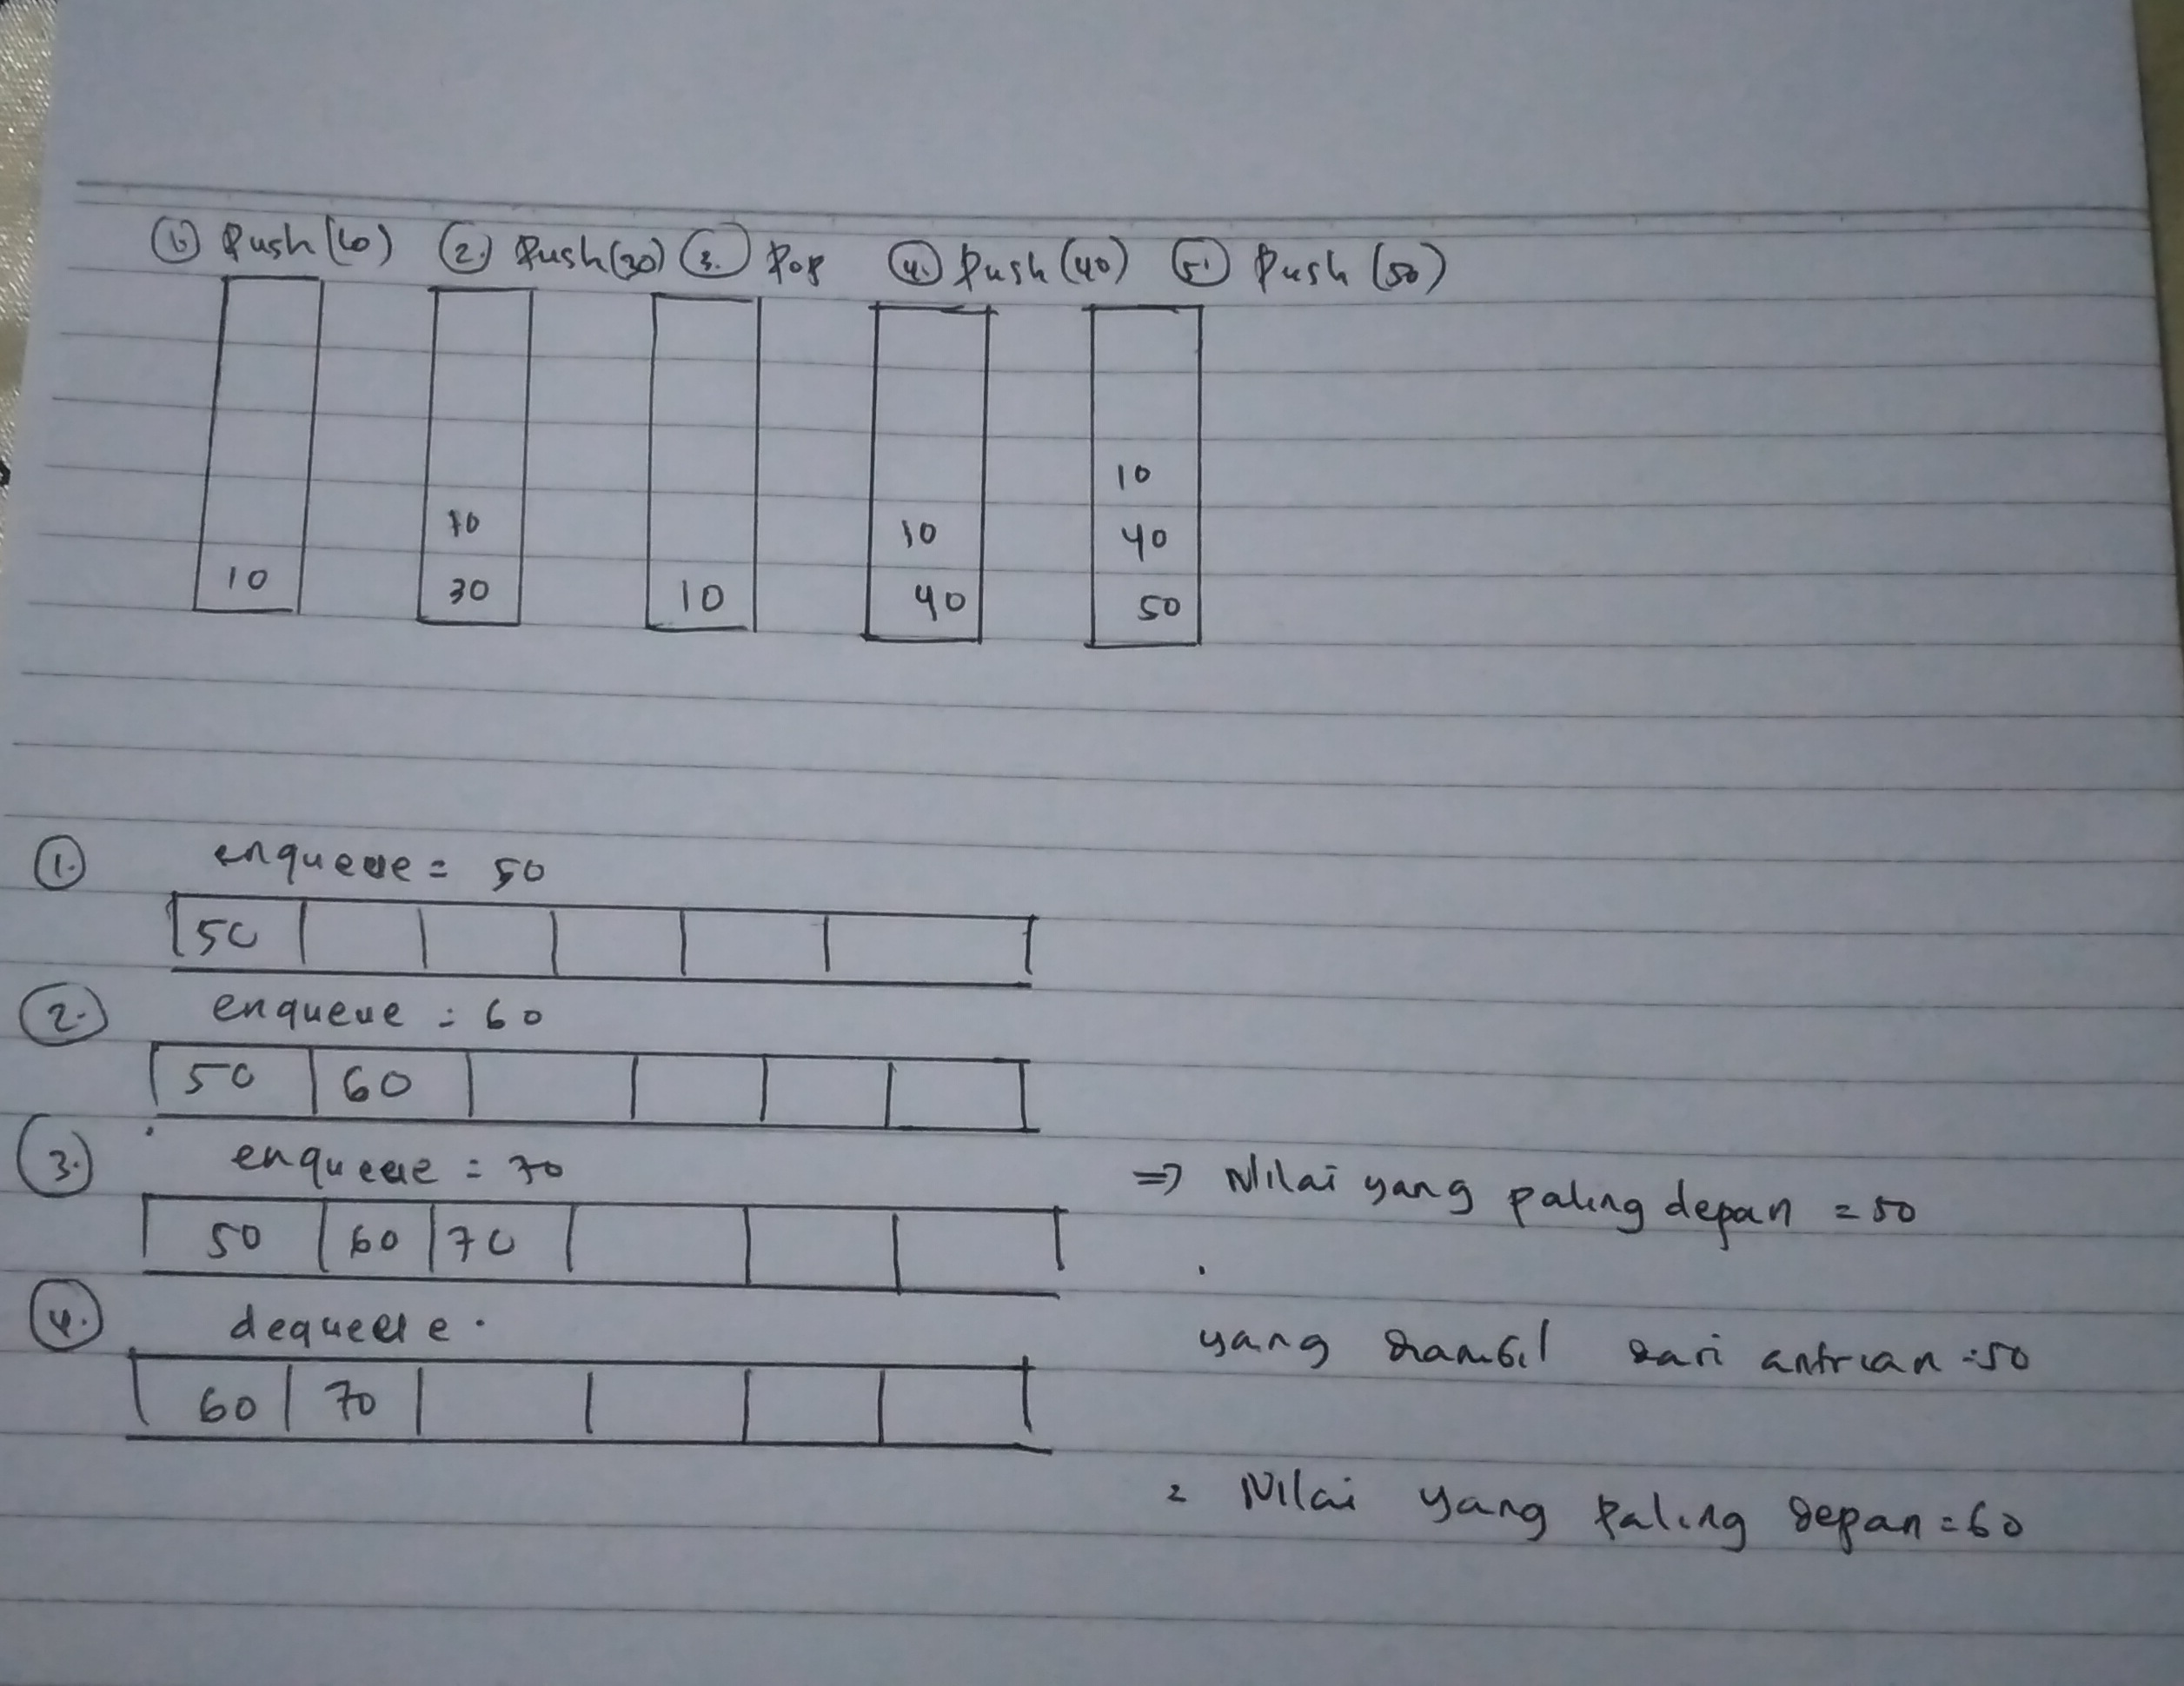 1. Push (10) 2. Push (30) 3. Pop 4. Push (40) 5. Push (50)
10
10 10 40
10 30 10 40 50
1. enqueue = 50
50
2. enqueue = 60
50 60
3. enqueue = 70
50 60 70
=> Nilai yang paling depan = 50
4. dequeue.
60 70
yang diambil dari antrian = 50
= Nilai yang paling depan = 60